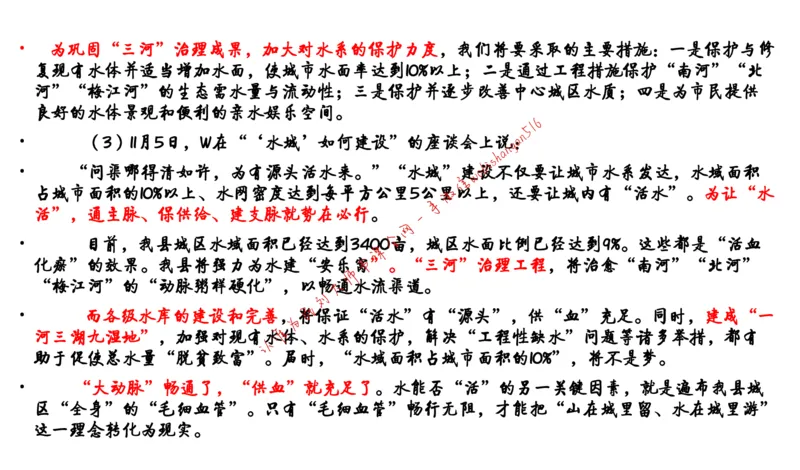 • 为巩固“三河”治理成果，加大对水系的保护力度，我们将要采取的主要措施：一是保护与修
复现有水体并适当增加水面，使城市水面率达到10%以上；二是通过工程措施保护“南河”“北
河”“梅江河”的生态需水量与流动性；三是保护并逐步改善中心城区水质；四是为市民提供
良好的水体景观和便利的亲水娱乐空间。
• （3）11月5日，W在“‘水城’如何建设”的座谈会上说：
• “问渠哪得清如许，为有源头活水来。”“水城”建设不仅要让城市水系发达，水域面积
占城市面积的10%以上、水网密度达到每平方公里5公里以上，还要让城内有“活水”。为让“水
活”，通主脉、保供给、建支脉就势在必行。
• 目前，我县城区水域面积已经达到3400亩，城区水面比例已经达到9%。这些都是“活血
化瘀”的效果。我县将强力为水建“安乐窝”。“三河”治理工程，将治愈“南河”“北河”
“梅江河”的“动脉粥样硬化”，以畅通水流渠道。
• 而各级水库的建设和完善，将保证“活水”有“源头”，供“血”充足。同时，建成“一
河三湖九湿地”，加强对现有水体、水系的保护，解决“工程性缺水”问题等诸多举措，都有
助于促使总水量“脱贫致富”。届时，“水域面积占城市面积的10%”，将不是梦。
• “大动脉”畅通了，“供血”就充足了。水能否“活”的另一关键因素，就是遍布我县城
区“全身”的“毛细血管”。只有“毛细血管”畅行无阻，才能把“山在城里留、水在城里游”
这一理念转化为现实。